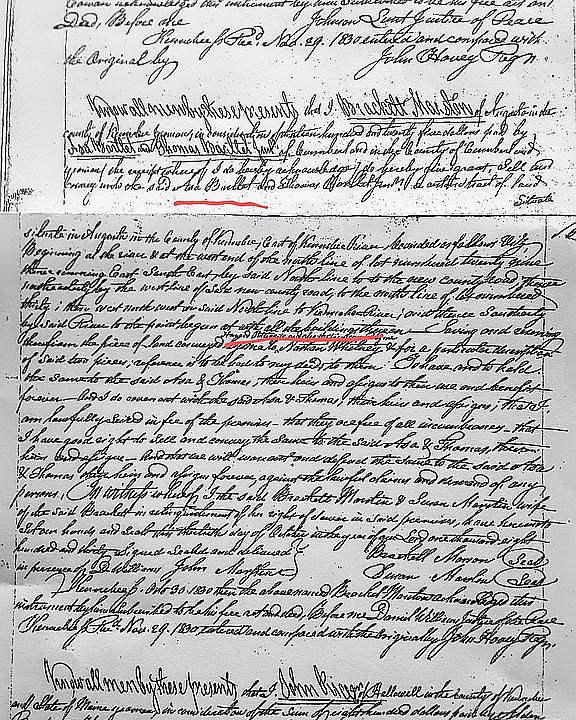 acknowledged this instrument by him subscribed to be his free act and
Deed, Before me Johnson Lunt Justice of Peace
Kennebec ss Recd. Nov. 29. 1830 entered and compared with
the Original by John Hovey Regr.
Know all men by these presents that I Brackett Marston of Augusta in the
County of Kennebec yeoman, in consideration of hundred and twenty five dollars paid by
Asa Bartlet and Thomas Bartlet Junr of Cumberland in the County of Cumberland
yeomen (the receipt whereof I do hereby acknowledge) do hereby give, grant, Sell and
convey unto the said Asa Bartlet and Thomas Bartlet Junr a certain tract of land
Situate
situate in Augusta in the County of Kennebec, East of Kennebec River bounded as follows Viz
Beginning at the river & at the west end of the North line of lot numbered twenty nine
thence running East South East by said North line to the new county road; thence
northerly by the west line of said new county road to the north line of lot numbered
thirty; thence west north west on said North line to Kennebec River; and thence Southerly
by said River to the point begun at with all the buildings thereon Saving and excepting
therefrom the piece of land conveyed Nathan Whitney & for a particular description
of said two pieces, reference is to be had to my deeds to them To have and to hold
the same to the said Asa & Thomas, their heirs and assigns to their use and benefit
forever And I do covenant with the said Asa & Thomas, their heirs and assigns, that I
am lawfully seized in fee of the premises that they are free of all incumbrances that
I have good right to sell and convey the same to the said Asa & Thomas, their
heirs and assigns And that we will warrant and defend the same to the said Asa
& Thomas their heirs and assigns forever, against the lawful claims and demand of any
persons, In witness whereof, I the said Brackett Marston & Susan Marston wife
of the said Brackett in relinquishment of her right of dower in said premises, have hereunto
set our hands and seals this thirtieth day of October in the year of our Lord one thousand eight
hundred and thirty. signed Sealed and delivered Brackett Marston Seal
in presence of D. Williams John Susan Marston Seal
Kennebec ss. Oct. 30. 1830 then the above named Brackett Marston acknowledged this
instrument by him subscribed to be his free act and deed, Before me Daniel Williams Justice of the Peace
Kennebec ss Recd. Nov. 29. 1830 entered and compared with the original by John Hovey Regr.
Know all men by these presents that I John of Hallowell in the County of Kennebec
and State of Maine yeoman in consideration of the sum of eight hundred dollars paid by